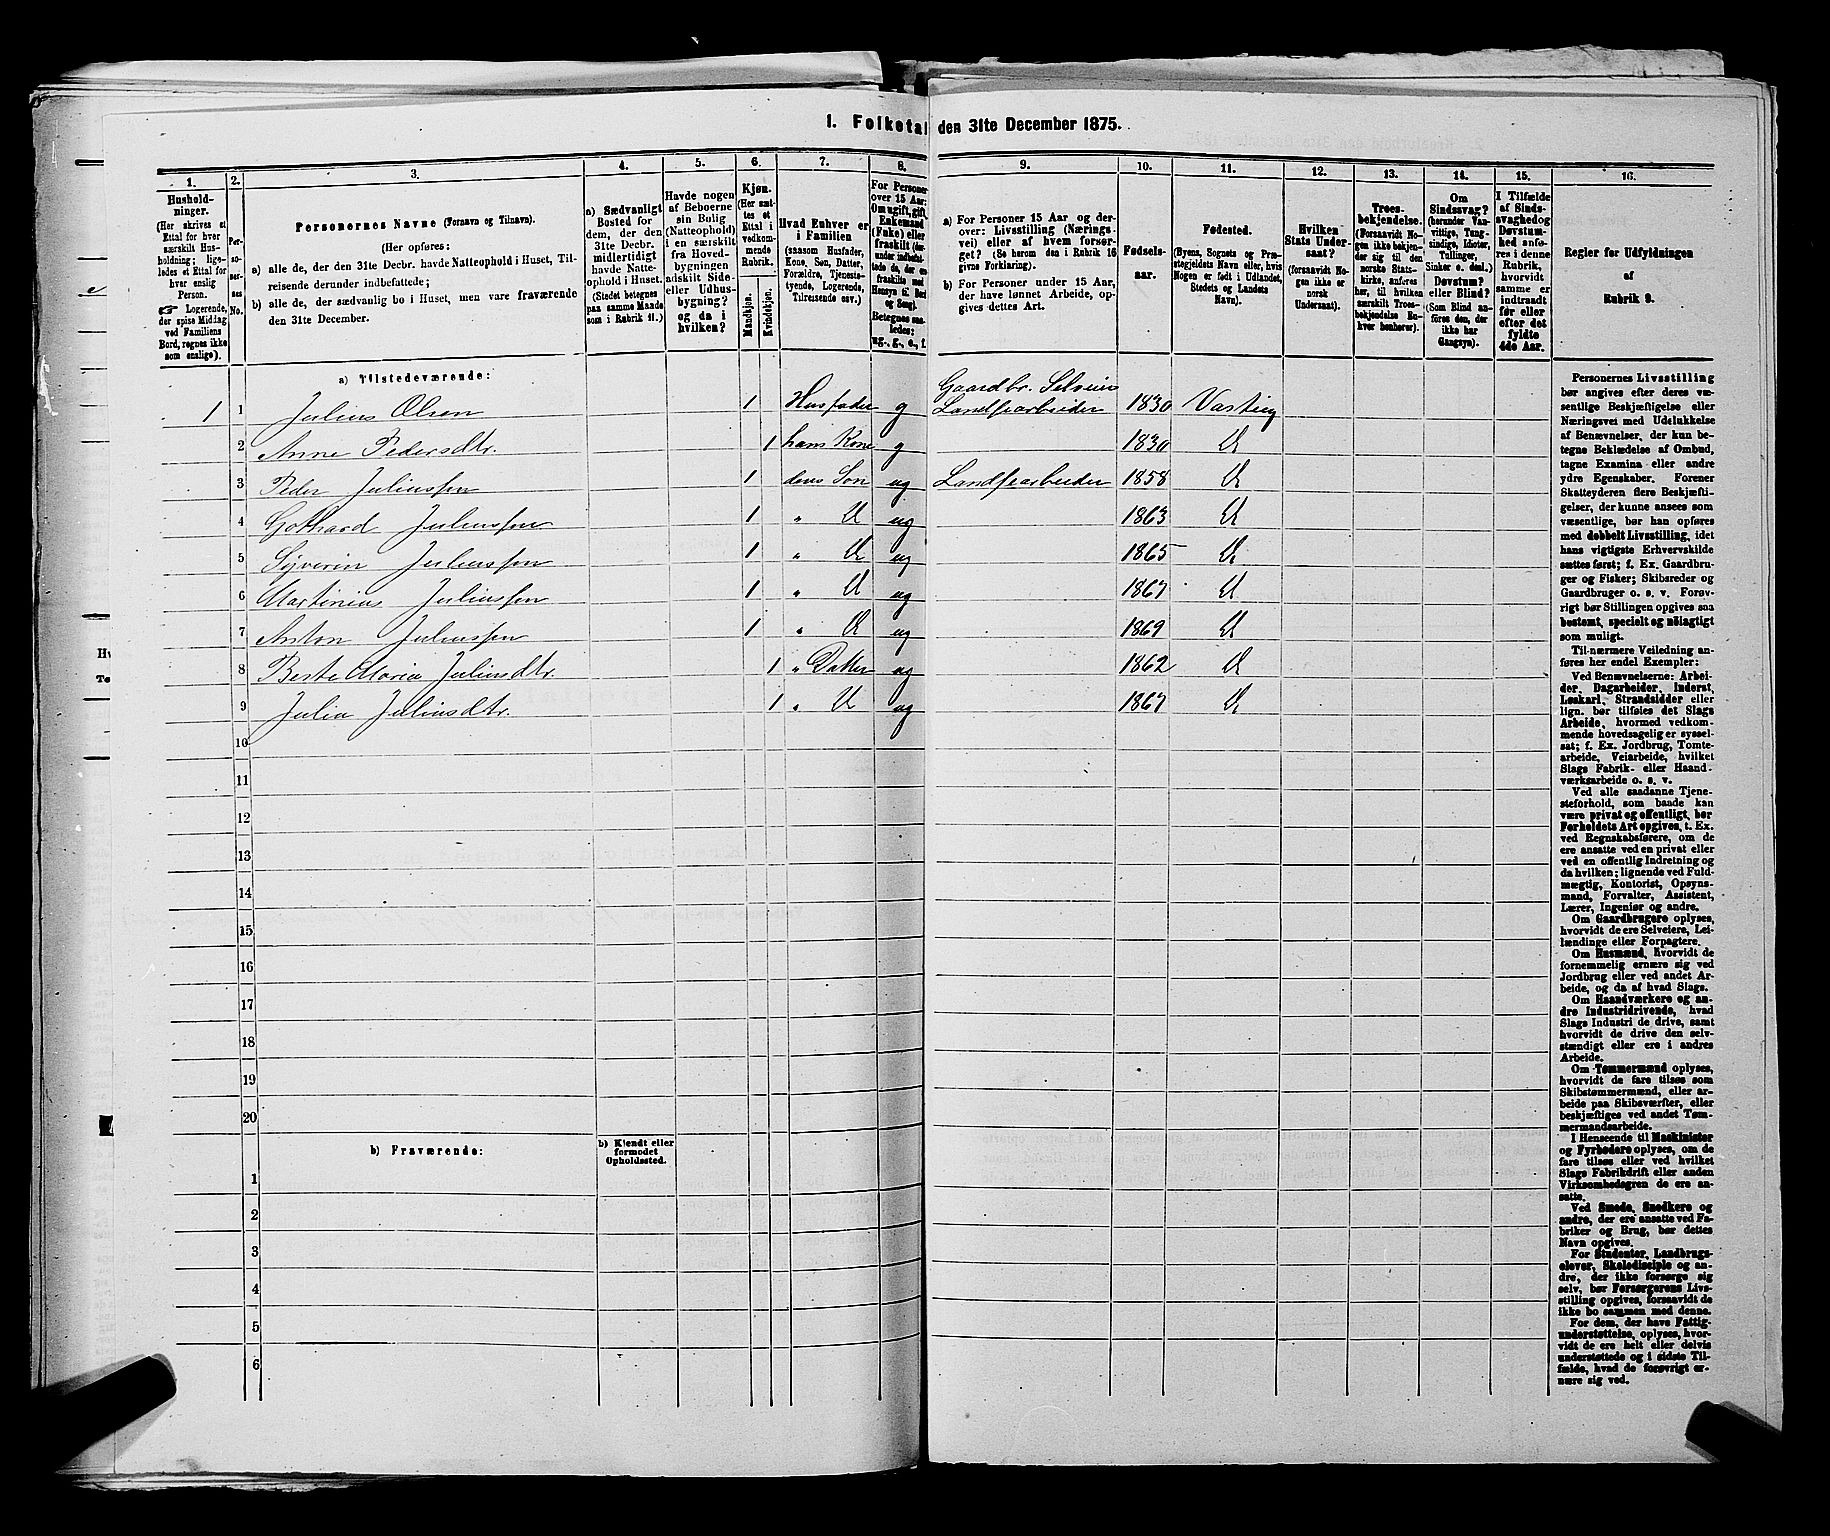 1. Folketal den 31te December 1875.
1.
Hushold-
ninger.
(Her skrives et
Ettal for hver
særskilt Hus-
holdning; lige-
ledes et Ettal for
hver enslig
Person.
☞ Logerende,
der spise Middag
ved Familiens
Bord, regnes ikke
som enslige).
2.
Per-
so-
ner-
nes
No.
3.
Personernes Navne (Fornavn og Tilnavn).
(Her opføres:
a) alle de, der den 31te Decbr. havde Natteophold i Huset, Til-
reisende derunder indbefattede;
b) alle de, der sædvanlig bo i Huset, men vare fraværende
den 31te December.
4.
a) Sædvanligt
Bosted for
dem, der den
31te Decbr.
midlertidigt
havde Natte-
ophold i Huset.
(Stedet betegnes
paa samme Maade
som i Rubrik 11.)
5.
Havde nogen
af Beboerne
sin Bolig
(Natteophold)
i en særskilt
fra Hoved-
bygningen
adskilt Side-
eller Udhus-
bygning?
og da i
hvilken?
6.
Kjøn.
(Her sæt-
tes et
Ettal i
vedkom-
mende
Rubrik.
Mandkjøn.
Kvindekjøn.
7.
Hvad Enhver er
i Familien
(saasom Husfader,
Kone, Søn, Datter,
Forældre, Tjeneste-
tyende, Logerende,
Tilreisende osv.)
8.
For Personer
over 15 Aar:
Om ugift, gift,
Enkemand
(Enke) eller
fraskilt
Betegnes saa-
ledes:
ug., g., e., f.
9.
a) For Personer 15 Aar og der-
over: Livsstilling (Nærings-
vei) eller af hvem forsør-
get? (Se herom den i Rubrik 16
givne Forklaring).
b) For Personer under 15 Aar,
der have lønnet Arbeide, op-
gives dettes Art.
10.
Fødsels-
aar.
11.
Fødested.
(Byens, Sognets og Præ-
stegjeldets Navn eller, hvis
Nogen er født i Udlandet,
Stedets og Landets
Navn).
12.
Hvilken
Stats Under-
saat?
(forsaavidt No-
gen ikke er
norsk
Undersaat).
13.
Troes-
bekjendelse.
(Forsaavidt No-
gen ikke bekjen-
der sig til den
norske Stats-
kirke, anføres
her, til hvilken
særskilt Troes-
bekjendelse En-
hver henhører).
14.
Om
Sindssvag?
(herunder Van-
vittige, Tung-
sindige, Idioter,
Tullinger,
Sinker o. desl.)
Døvstum?
eller Blind?
(Som Blind an-
føres den, der
ikke har
Gangsyn).
15.
I Tilfælde
af Sinds-
svaghed og
Døvstum-
hed anfø-
res i denne
Rubrik,
hvorvidt
samme er
indtraadt
før eller
efter det
fyldte
4de Aar.
16.
Regler for Udfyldningen
af
Rubrik 9.
a) Tilstedeværende:
Gaardbr. Selveier
1 1 Julius Olsen 1 Husfader g Landsearbeider 1830
2 Anne Pedersdtr. 1 hans Kone g 1830
3 Peder Juliussen 1 deres Søn ug Landsearbeider 1858
4 Gothard Juliussen 1 " ug 1863
5 Syverin Juliussen 1 " ug 1865
6 Martinius Juliussen 1 " ug 1867
7 Anton Juliussen 1 " ug 1869
8 Berte Maria Juliusdtr. 1 " Datter ug 1862
9 Julia Juliusdtr. 1 " ug 1867
10
11
12
13
14
15
16
17
18
19
20
b) Fraværende:
b) Kjendt eller
formodet
Opholdssted.
1
2
3
4
5
6
Personernes Livsstilling
bør angives efter deres væ-
sentlige Beskjæftigelse eller
Næringsvei med Udelukkelse
af Benævnelser, der kun be-
tegne Beklædelse af Ombud,
tagne Examina eller andre
ydre Egenskaber. Forener
Skatteyderen flere Beskjæfti-
gelser, der kunne ansees som
væsentlige, bør han opføres
med dobbelt Livsstilling, idet
hans vigtigste Erhvervskilde
sættes først; f. Ex. Gaardbru-
ger og Fisker; Skibsreder og
Gaardbruger o. s. v. Forøv-
rigt bør Stillingen opgives saa
bestemt, specielt og nøiagtigt
som muligt.
Til nærmere Veiledning an-
føres her endel Exempler:
Ved Benævnelserne: Arbei-
der, Dagarbeider, Inderst,
Løskarl, Strandsidder eller
lign. bør tilføies det Slags
Arbeide, hvormed vedkom-
mende hovedsagelig er syssel-
sat; f. Ex. Jordbrug, Tomte-
arbeide, Veiarbeide, hvilket
Slags Fabrik- eller Haand-
værksarbeide o. s. v.
Ved alle saadanne Tjene-
steforhold, som baade kan
være privat og offentligt, bør
Forholdets Art opgives, t. Ex.
ved Regnskabsførere, om de
ere ansatte ved en privat eller
ved en offentlig Indretning og
da hvilken; lignende ved Fuld-
mægtig, Kontorist, Opsyns-
mand, Forvalter, Assistent,
Lærer, Ingeniør og andre.
Om Gaardbrugere oplyses,
hvorvidt de ere Selveiere, Lei-
lændinge eller Forpagtere.
Om Husmænd, hvorvidt de
fornemmelig ernære sig ved
Jordbrug eller ved andet Ar-
beide, og da af hvad Slags.
Om Haandværkere og an-
dre Industridrivende, hvad
Slags Industri de drive, samt
hvorvidt de drive den selv-
stændigt eller ere i andres
Arbeide.
Om Tømmermænd oplyses,
hvorvidt de fare tilsøs som
Skibstømmermænd, eller ar-
beide paa Skibsværfter, eller
beskjæftiges ved andet Tøm-
mermandsarbeide.
I Henseende til Maskinister
og Fyrbødere oplyses, om de
fare tilsøs eller ved hvilket
Slags Fabrikdrift eller anden
Virksomhedsgren de ere an-
satte.
Ved Smede, Snedkere og
andre, der ere ansatte ved Fa-
briker og Brug, bør dettes
Navn opgives.
For Studenter, Landbrugs-
elever, Skoledisciple og an-
dre, der ikke forsørge sig
selv, bør Forsørgerens Livs-
stilling opgives, forsaavidt de
ikke bo sammen med denne.
For dem, der have Fattig-
understøttelse, oplyses, hvor-
vidt de ere helt eller delvis
understøttede og i sidste Til-
fælde, hvad de forøvrigt er-
nære sig ved.